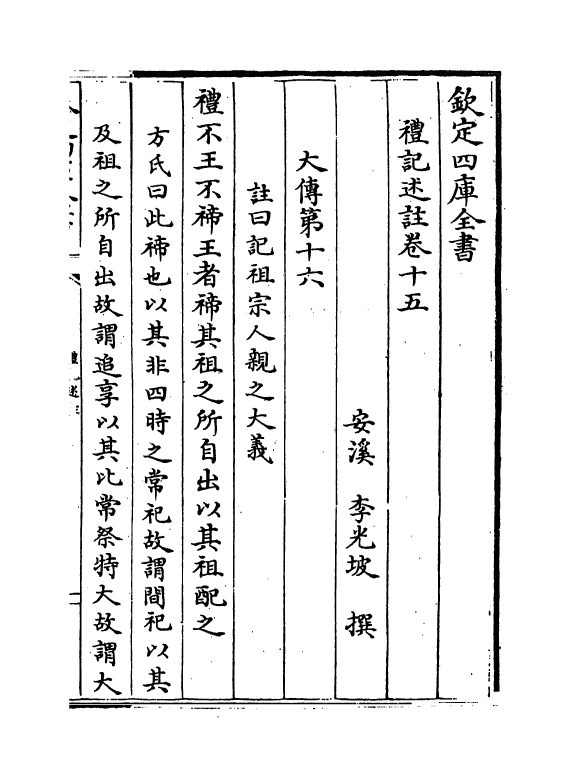 欽定四庫全書
禮記述註卷十五
安溪 李光坡 撰
大傳第十六
註曰記祖宗人親之大義
禮不王不禘王者禘其祖之所自出以其祖配之
方氏曰此禘也以其非四時之常祀故謂間祀以其
及祖之所自出故謂追享以其比常祭特大故謂大